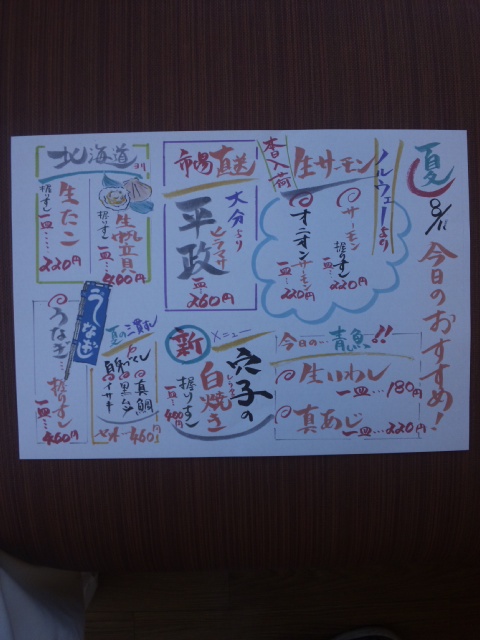 夏
8/11
今日のおすすめ!
ノルウェーより
本日入荷
生サーモン
サーモン
握りずし
一皿…220円
オニオンサーモン
一皿…220円
今日の…青魚!!
生いわし
一皿…180円
真あじ
一皿…220円
市場直送
大分より
ヒラマサ
平政
一皿…260円
新メニュー
穴子の
しらやき
白焼き
握りずし
一皿…
北海道より
生帆立貝
握りずし
一皿…400円
生たこ
握りずし
一皿…220円
夏の三貫
白身づくし
真鯛
黒ムツ
イサキ
セット…460円
うなぎ
うなぎ…握りずし
一皿…460円